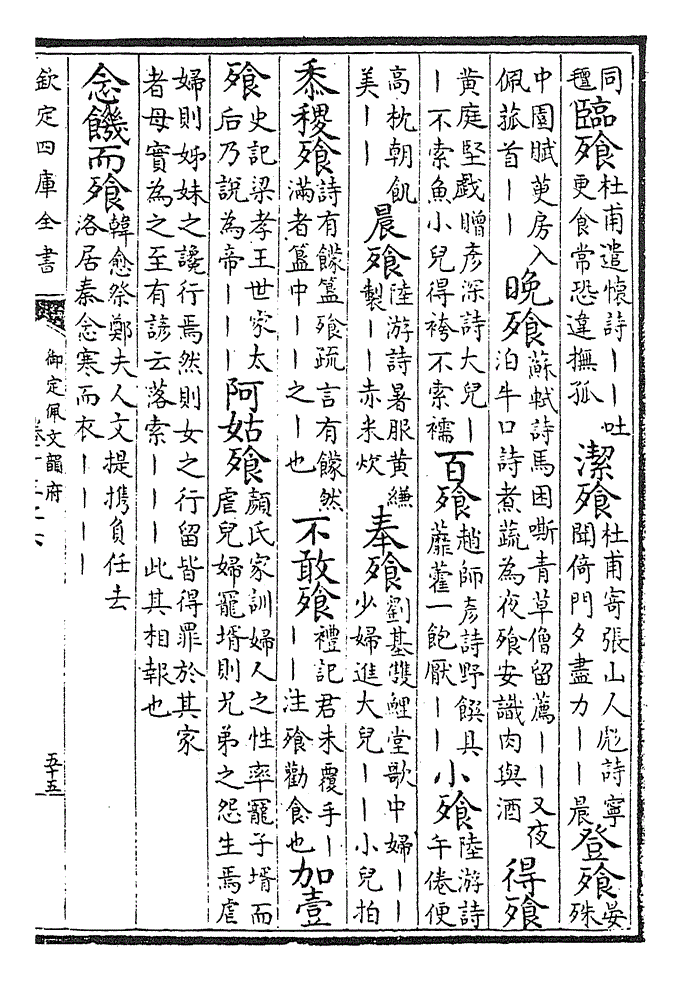 同氊臨飱杜甫遣懷詩——吐更食常恐違撫孤潔飱杜甫寄張山人彪詩寧聞倚門夕盡力——晨登飱晏殊
中園賦萸房入佩菰首——晚飱蘇軾詩馬困嘶青草僧留薦——又夜泊牛口詩煮蔬為夜飱安識肉與酒得飱
黄庭堅戲贈彦深詩大兒——不索魚小兒得袴不索襦百飱趙師彦詩野饌具藜藿一飽厭——小飱陸游詩午倦便
高枕朝飢美——晨飱陸游詩暑服黄縑製——赤米炊奉飱劉基雙鯉堂歌中婦——少婦進大兒——小兒拍
黍稷飱詩有饛簋飱疏言有饛然滿者簋中——之—也不敢飱禮記君未覆手———注飱勸食也加壺
飱史記梁孝王世家太后乃說為帝————阿姑飱顔氏家訓婦人之性率寵子壻而虐兒婦寵壻則兄弟之怨生焉虐
婦則姊妹之讒行焉然則女之行留皆得罪於其家者母實為之至有諺云落索———此其相報也
念饑而飱韓愈祭鄭夫人文提携負任去洛居秦念寒而衣————
欽定四庫全書
御定佩文韻府
五十五